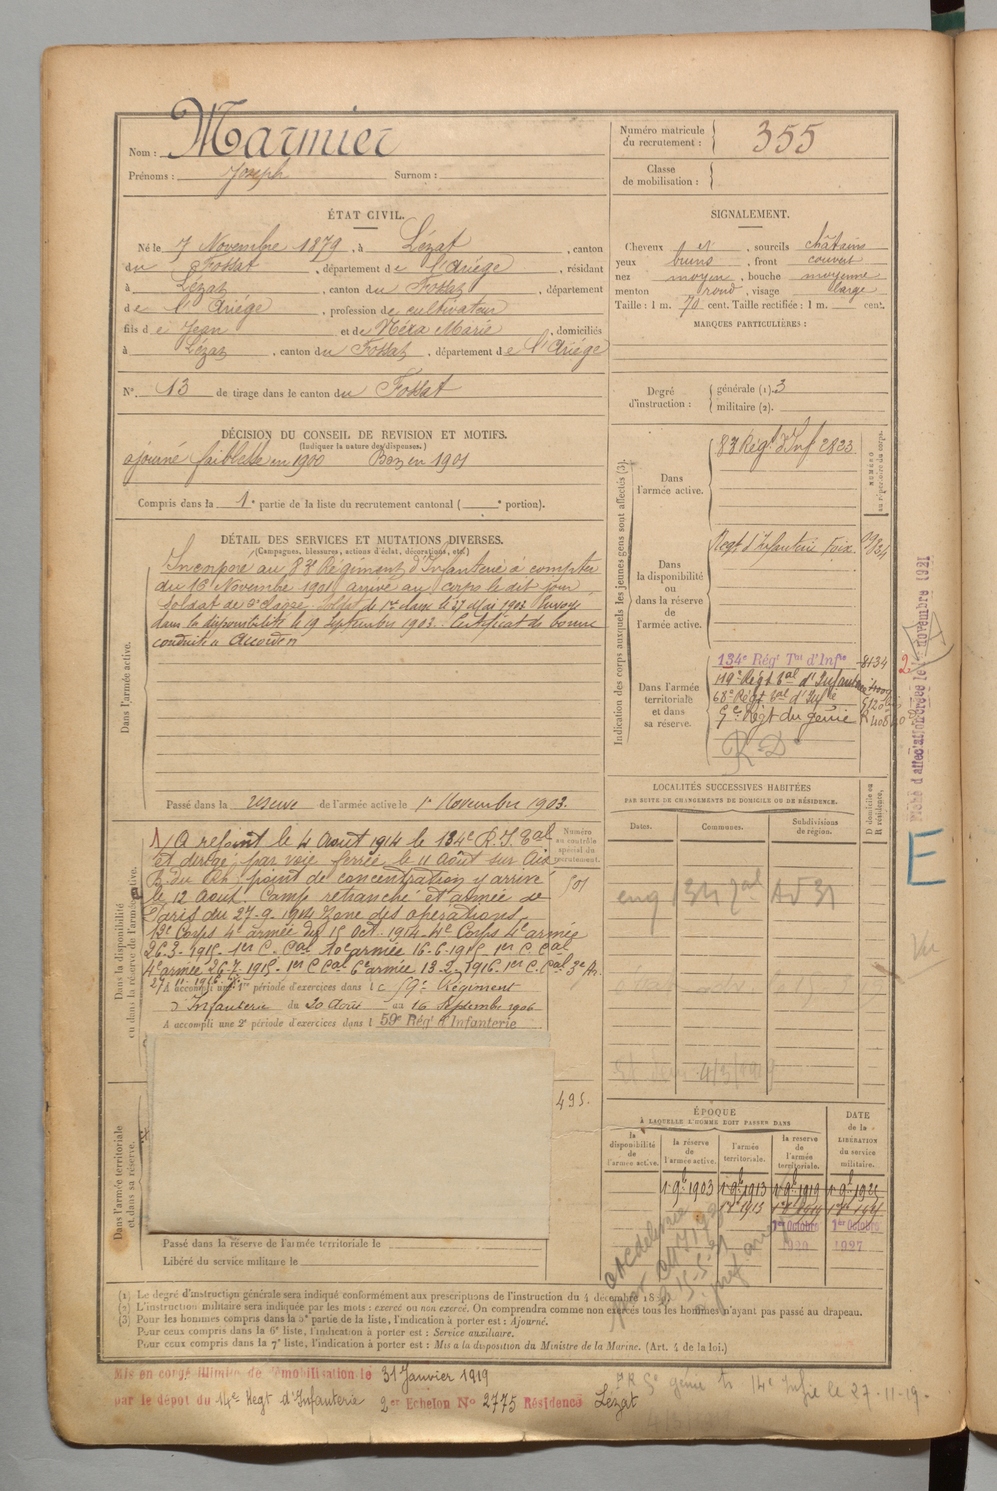 Nom : Marmier
Prénoms : Joseph Surnom :
Numéro matricule du recrutement : 355
Classe de mobilisation :
ÉTAT CIVIL.
Né le 7 Novembre 1879, à Lézat, canton
du Fossat, département de l'Ariége, résidant
à Lézat, canton du Fossat, département
de l'Ariége, profession de cultivateur
fils de Jean et de Méxa Marie, domiciliés
à Lézat, canton du Fossat, département de l'Ariége
N° 13 de tirage dans le canton du Fossat
SIGNALEMENT.
Cheveux et, sourcils châtains
yeux bruns, front couvert
nez moyen, bouche moyenne
menton rond, visage large
Taille : 1 m. 70 cent. Taille rectifiée : 1 m. cent.
MARQUES PARTICULIÈRES :
Degré d'instruction : générale (1). 3
militaire (2).
DÉCISION DU CONSEIL DE REVISION ET MOTIFS.
(Indiquer la nature des dispenses.)
ajourné faiblesse en 1900 Bon en 1901
Compris dans la 1e partie de la liste du recrutement cantonal ( e portion).
DÉTAIL DES SERVICES ET MUTATIONS DIVERSES.
(Campagnes, blessures, actions d'éclat, décorations, etc.)
Dans l'armée active.
Incorporé au 83e Régiment d'Infanterie à compter
du 16 Novembre 1901 arrivé au corps le dit jour,
soldat de 2e classe. Soldat de 1re classe le 27 Mai 1903 Envoyé
dans la disponibilité le 19 Septembre 1903. Certificat de bonne
conduite "Accordé"
Passé dans la réserve de l'armée active le 1er Novembre 1903.
Indication des corps auxquels les jeunes gens sont affectés (3).
NUMÉRO au répertoire du corps.
Dans l'armée active.
83 Régt d'Inf 2823
Dans la disponibilité ou dans la réserve de l'armée active.
Regt d'Infanterie Foix
Dans l'armée territoriale et dans sa réserve.
134e Régt Tal d'Infie 8134
119e Régt Tal d'Infanterie
68e Régt Tal d'Infie
5e Régt du génie
R D
Fiché d'affectation créée le 1er novembre 1921
E
Vu
Dans la disponibilité ou dans la réserve de l'armée active.
Numéro au contrôle spécial du recrutement.
501
A rejoint le 4 Août 1914 le 134e R.I. Tal
Et dirigé par voie ferrée le 11 août sur Aix
B. du Rh. point de concentration y arrivé
le 12 Août. Camp retranché et armée de
Paris du 27-9-1914 Zone des opérations
12e Corps 4e armée du 15 Oct. 1914 4e Corps 4e armée
26-3-1915 1er C. Cal 10e armée 16-6-1915 1er C. Cal
4e armée 26-7-1915 1er C Cal 6e armée 13-2-1916 1er C. Cal 3e Ar.
A accompli une 1re période d'exercices dans le 59e Régiment
d'Infanterie du 20 Août au 16 Septembre 1906
A accompli une 2e période d'exercices dans l 59e Régt d'Infanterie
Dans l'armée territoriale et dans sa réserve.
495.
Passé dans la réserve de l'armée territoriale le
Libéré du service militaire le
LOCALITÉS SUCCESSIVES HABITÉES
PAR SUITE DE CHANGEMENTS DE DOMICILE OU DE RÉSIDENCE.
Dates. Communes. Subdivisions de région. D domicile ou R résidence.
4/3/1919
ÉPOQUE
À LAQUELLE L'HOMME DOIT PASSER DANS
DATE de la LIBÉRATION du service militaire.
la disponibilité de l'armée active. la réserve de l'armée active. l'armée territoriale. la réserve de l'armée territoriale.
1er 9bre 1903 1er 9bre 1913 1er 9bre 1919
1er Octobre 1er Octobre
1920 1927
(1) Le degré d'instruction générale sera indiqué conformément aux prescriptions de l'instruction du 4 décembre
(2) L'instruction militaire sera indiquée par les mots : exercé ou non exercé. On comprendra comme non exercés tous les hommes n'ayant pas passé au drapeau.
(3) Pour les hommes compris dans la 5e partie de la liste, l'indication à porter est : Ajourné.
Pour ceux compris dans la 6e liste, l'indication à porter est : Service auxiliaire.
Pour ceux compris dans la 7e liste, l'indication à porter est : Mis à la disposition du Ministre de la Marine. (Art. 4 de la loi.)
Mis en congé illimité de démobilisation le 31 Janvier 1919
par le dépôt du 14e Regt d'Infanterie 2e Echelon No 2775 Résidence Lézat
27-11-19.